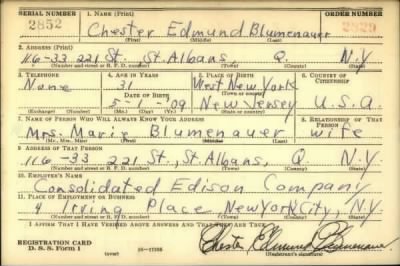 SERIAL NUMBER 1. NAME (Print) ORDER NUMBER
2852 Chester Edmund Blumenauer 2829
(First) (Middle) (Last)
2. ADDRESS (Print)
116-33 221 St. St. Albans, Q N.Y.
(Number and street or R. F. D. number) (Town) (County) (State)
3. TELEPHONE 4. AGE IN YEARS 5. PLACE OF BIRTH 6. COUNTRY OF CITIZENSHIP
None 31 West New York
DATE OF BIRTH
5-1-'09 New Jersey U.S.A.
7. NAME OF PERSON WHO WILL ALWAYS KNOW YOUR ADDRESS 8. RELATIONSHIP OF THAT PERSON
Mrs. Marie Blumenauer wife
(Mr., Mrs., Miss) (First) (Middle) (Last)
9. ADDRESS OF THAT PERSON
116-33 221 St., St. Albans, Q N.Y.
(Number and street or R. F. D. number) (Town) (County) (State)
10. EMPLOYER'S NAME
Consolidated Edison Company
11. PLACE OF EMPLOYMENT OR BUSINESS
4 Irving Place New York City, N.Y.
(Number and street or R. F. D. number) (Town) (County) (State)
I AFFIRM THAT I HAVE VERIFIED ABOVE ANSWERS AND THAT THEY ARE TRUE.
REGISTRATION CARD
D. S. S. Form 1 (over) Chester Edmund Blumenauer
(Registrant's signature)